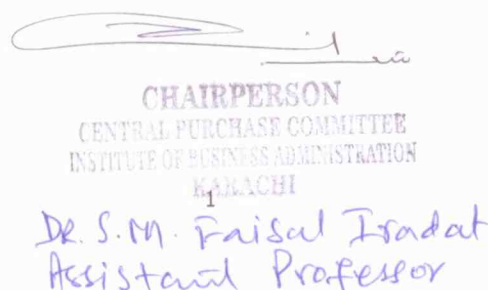 CHAIRPERSON
CENTRAL PURCHASE COMMITTEE
INSTITUTE OF BUSINESS ADMINISTRATION
KARACHI
1
DR. S.M. Faisal Iradat
Assistant Professor